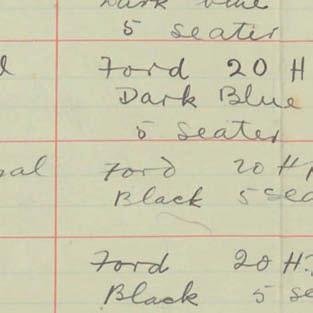 Dark blue
5 seater
Ford 20 H
Dark Blue
5 Seater
Ford 20 H
Black 5 sea
Ford 20 H.
Black 5 se